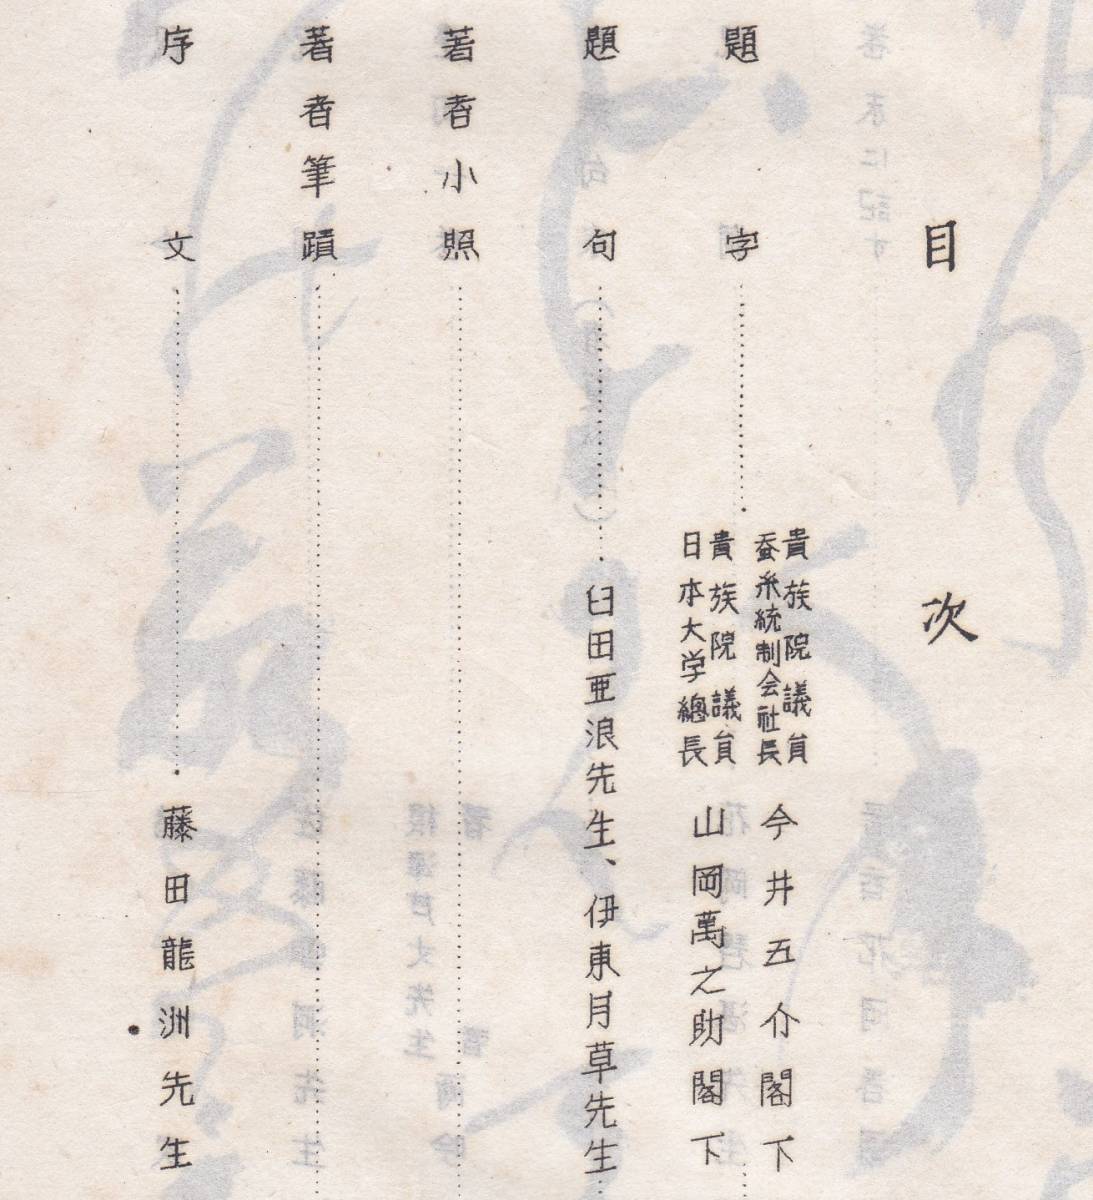 目次
題字……貴族院議員 蚕糸統制会社長 今井五介閣下
貴族院議員 日本大学總長 山岡萬之助閣下
題句……臼田亜浪先生、伊東月草先生
著者小照……
著者筆蹟……
序文……藤田龍洲先生